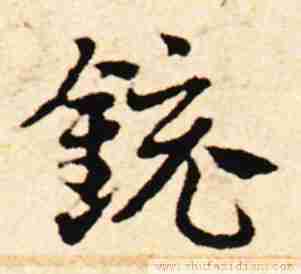 銃
www.shufazidian.com